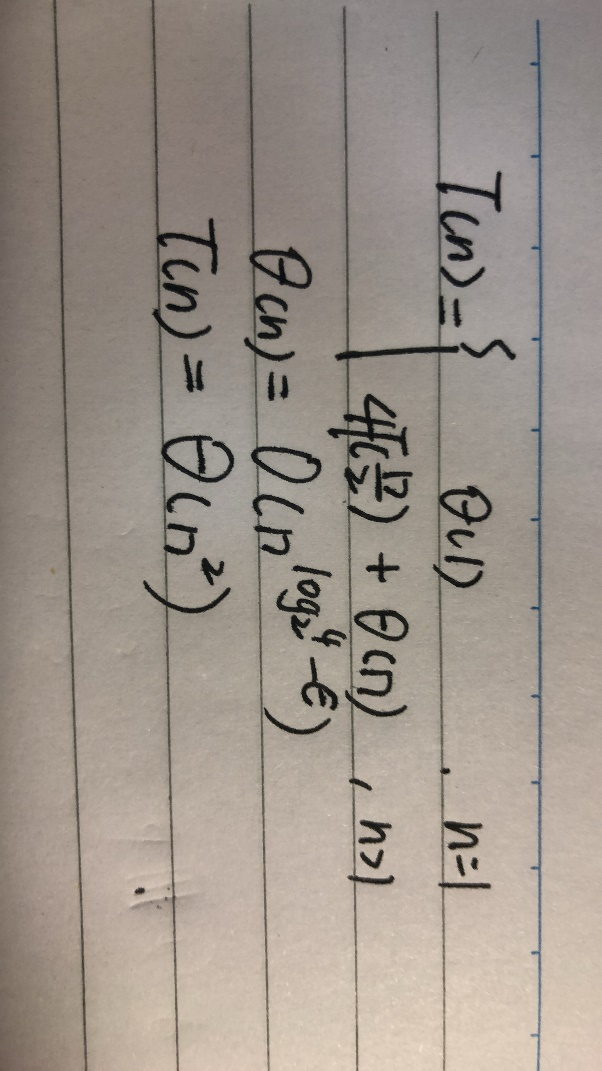 T(n) = { θ(1) , n=1
4T(n/2) + θ(n) , n>1
θ(n) = O(n^{log_2^4 - ε})
T(n) = θ(n^2)